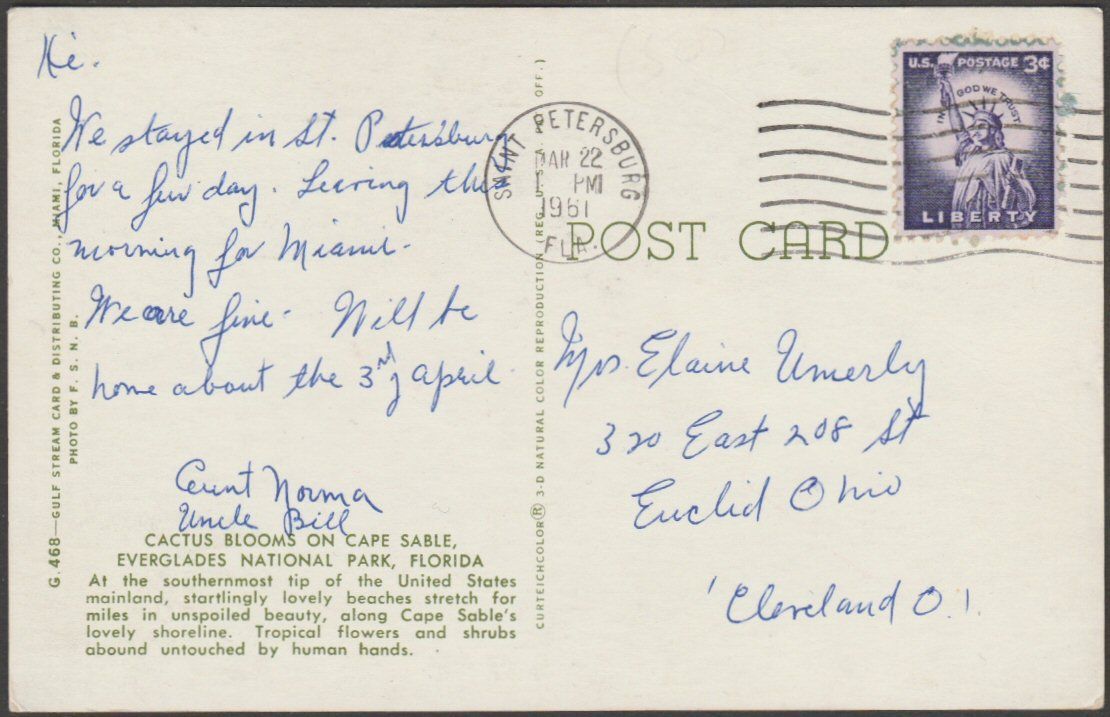 Hi.
We stayed in St. Petersburg
for a few day. Leaving this
morning for Miami.
We are fine. Will be
home about the 3rd of April.
Aunt Norma
Uncle Bill
CACTUS BLOOMS ON CAPE SABLE,
EVERGLADES NATIONAL PARK, FLORIDA
At the southernmost tip of the United States
mainland, startlingly lovely beaches stretch for
miles in unspoiled beauty, along Cape Sable's
lovely shoreline. Tropical flowers and shrubs
abound untouched by human hands.
G. 468—GULF STREAM CARD & DISTRIBUTING CO., MIAMI, FLORIDA
PHOTO BY F. S. N. B.
CURTEICHCOLOR® 3-D NATURAL COLOR REPRODUCTION (REG. U.S.A. PAT. OFF.)
SAINT PETERSBURG
MAR 22
PM
1961
FLA.
POST CARD
U.S. POSTAGE 3¢
IN GOD WE TRUST
LIBERTY
Mrs. Elaine Umerly
320 East 208 St
Euclid Ohio
Cleveland O.